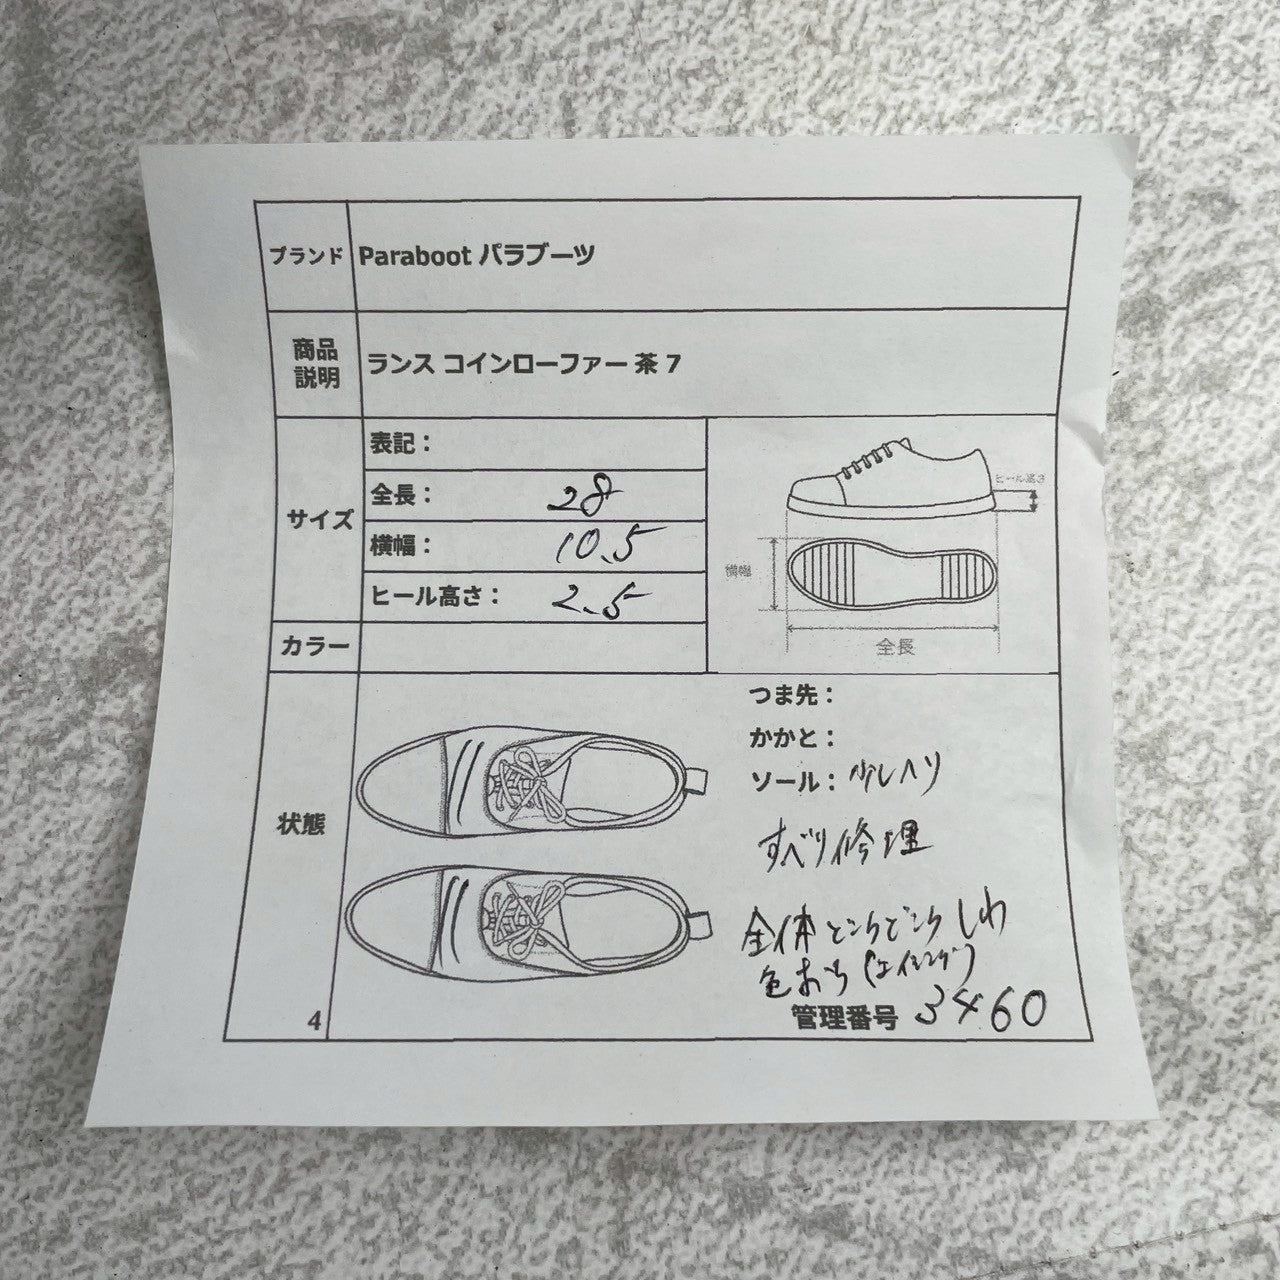 ブランド Paraboot パラブーツ
商品
説明
ランス コインローファー 茶 7
サイズ
表記：
全長： 28
横幅： 10.5
ヒール高さ： 2.5
ヒール高さ
横幅
全長
カラー
状態
つま先：
かかと：
ソール： 少しヘリ
すべり修理
全体 しわ
色おち (エイジング)
管理番号 3460
4